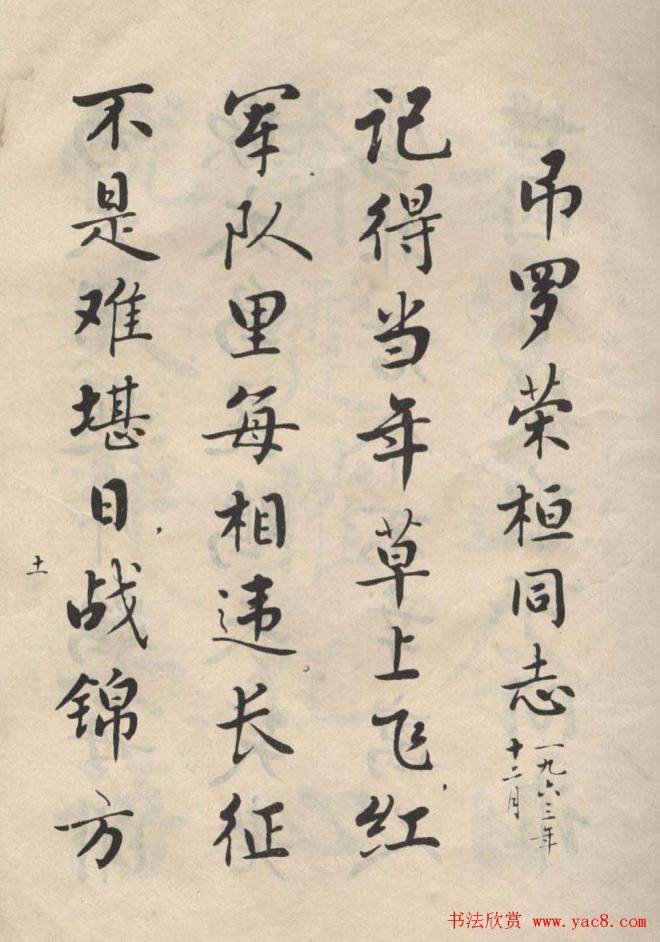 吊罗荣桓同志
一九六三年
十二月
记得当年草上飞,红
军队里每相违。长征
不是难堪日,战锦方
十一
书法欣赏 www.yac8.com